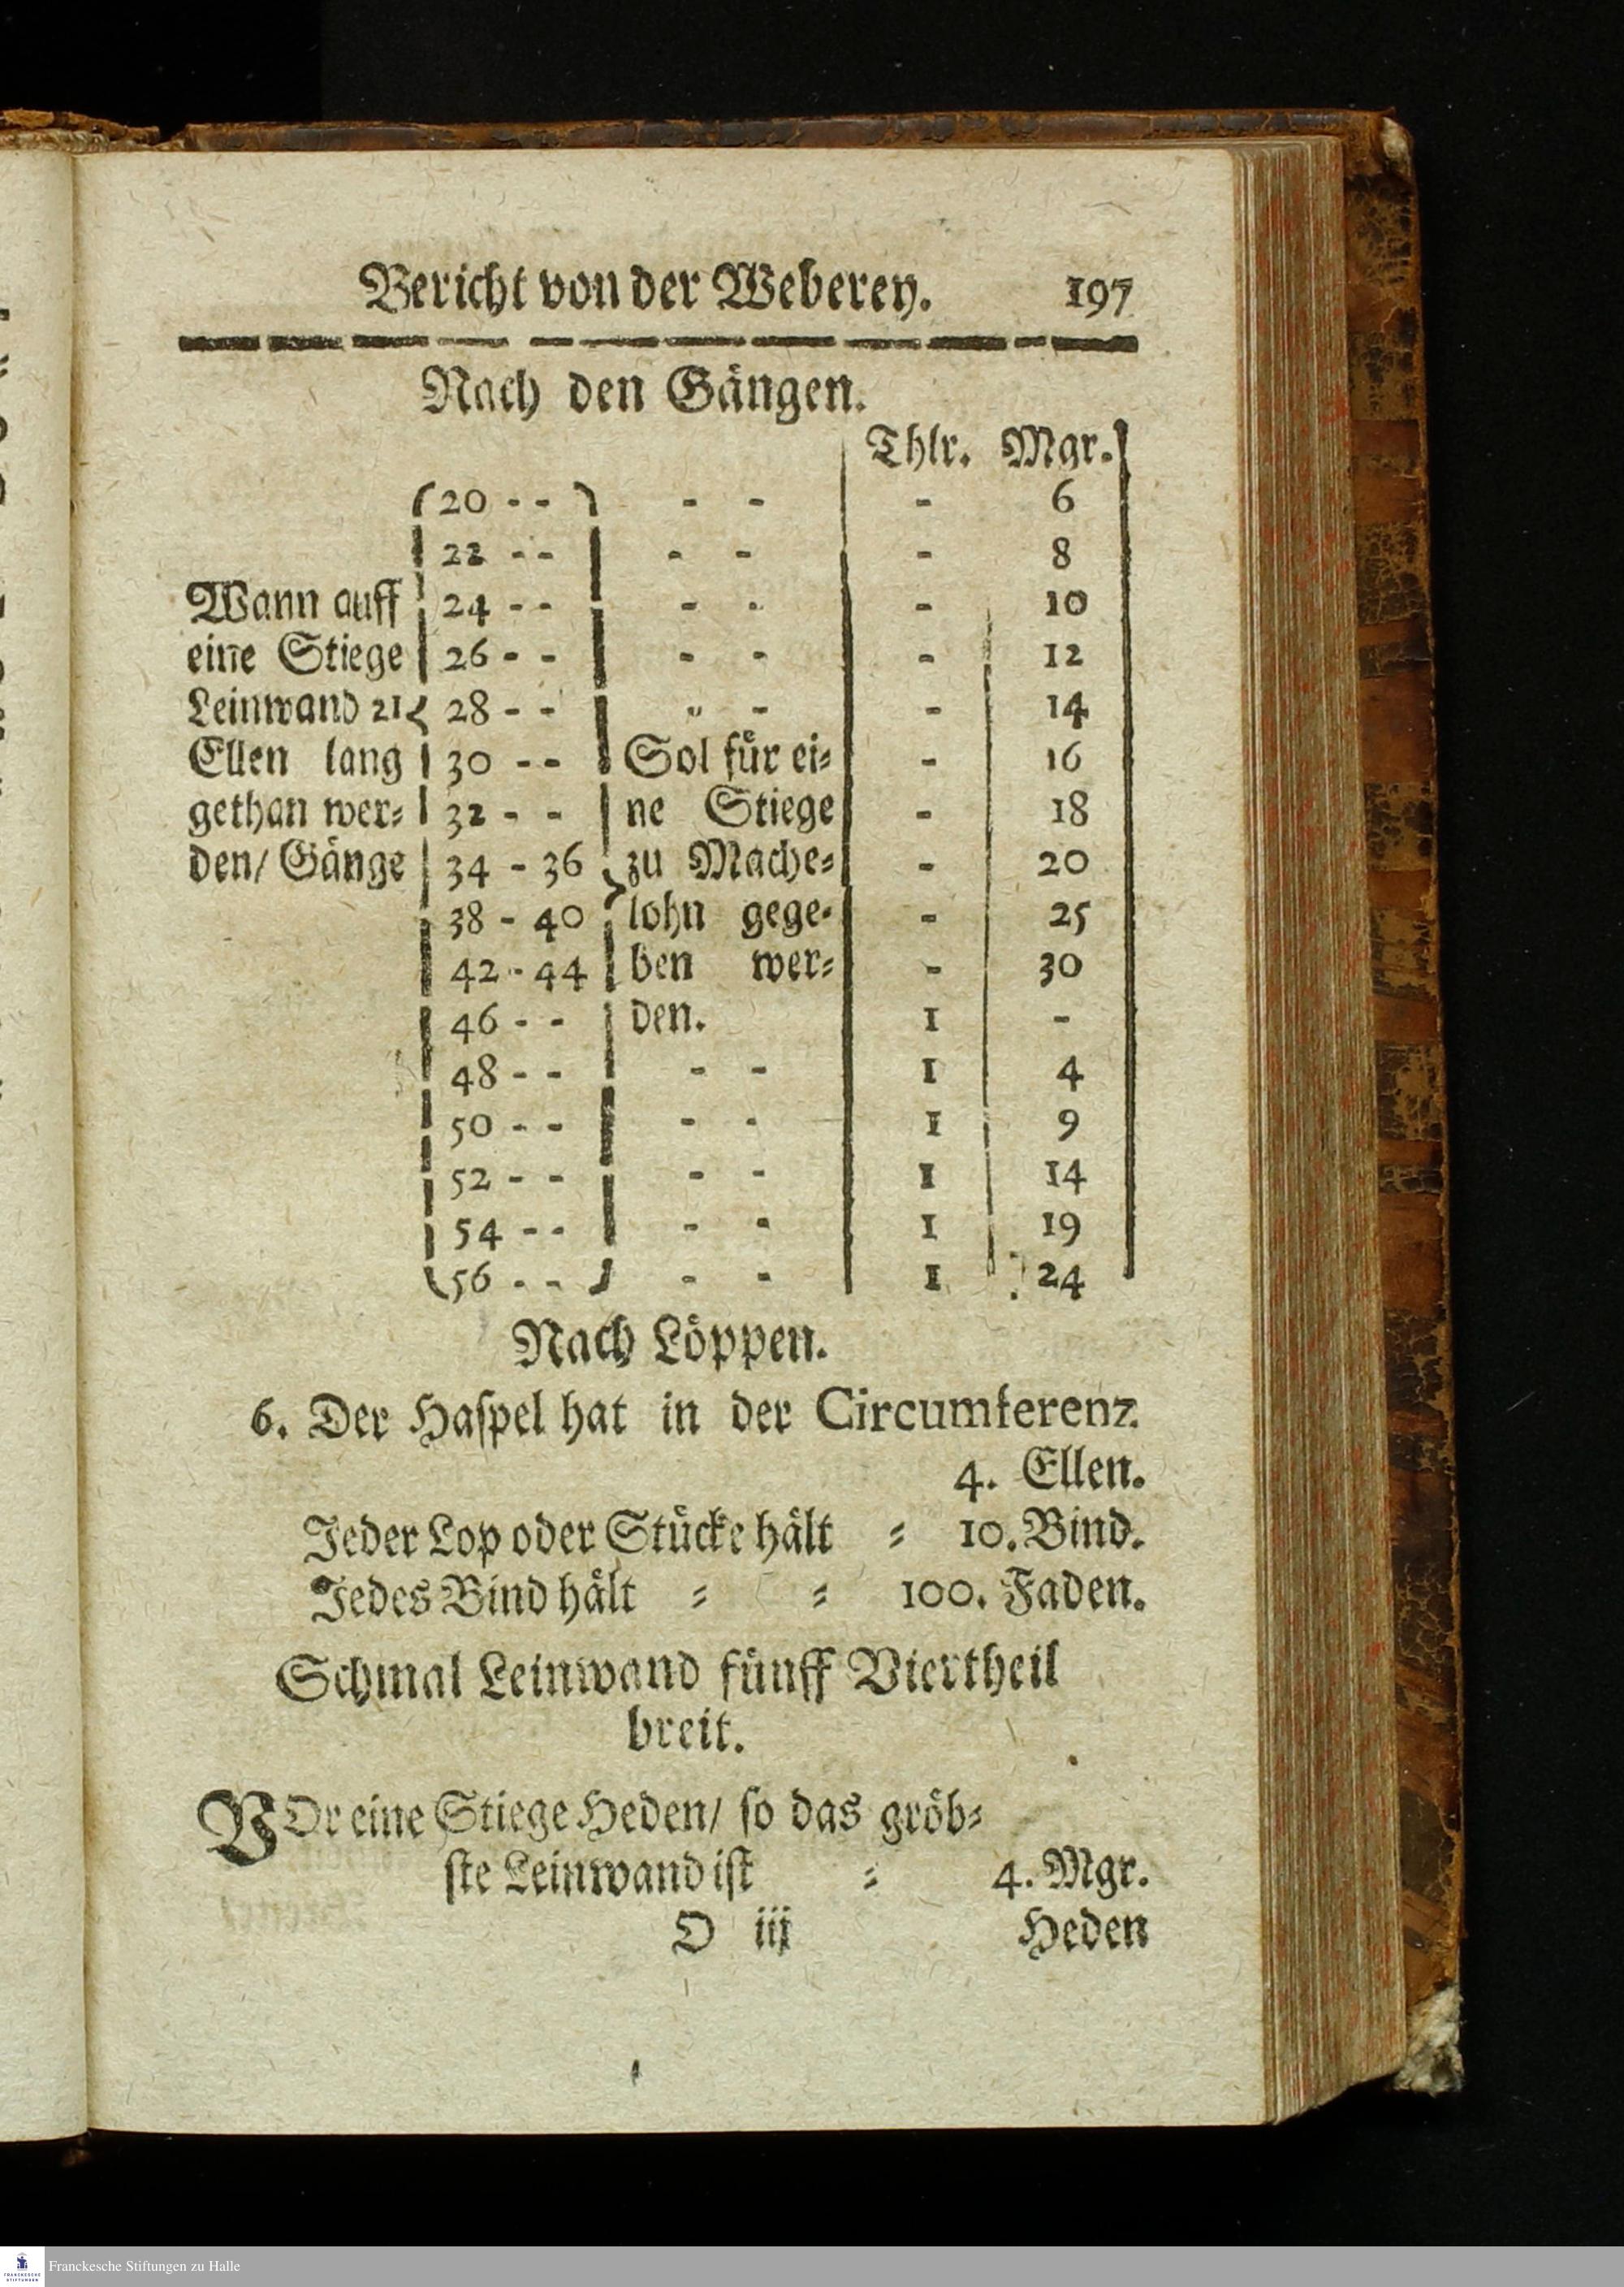 Bericht von der Weberey. 197
Nach den Gängen.
Thlr. Mgr.
20 - - - - - 6
22 - - - - - 8
Wann auff 24 - - - - - 10
eine Stiege 26 - - - - - 12
Leinwand 21 28 - - - - - 14
Ellen lang 30 - - Sol für ei= - 16
gethan wer= 32 - - ne Stiege - 18
den/ Gänge 34 - 36 zu Mache= - 20
38 - 40 lohn gege= - 25
42 - 44 ben wer= - 30
46 - - den. 1 -
48 - - - - 1 4
50 - - - - 1 9
52 - - - - 1 14
54 - - - - 1 19
56 - - - - 1 24
Nach Löppen.
6. Der Haspel hat in der Circumferenz
4. Ellen.
Jeder Lop oder Stücke hält = 10. Bind.
Jedes Bind hält = = 100. Faden.
Schmal Leinwand fünff Viertheil
breit.
VOr eine Stiege Heden/ so das gröb=
ste Leinwand ist = 4. Mgr.
O iij Heden
Franckesche Stiftungen zu Halle
FRANCKESCHE
STIFTUNGEN